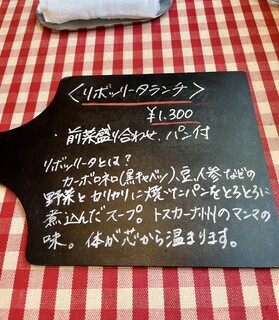 〈リボッリータランチ〉
¥1,300
・前菜盛り合わせ、パン付
リボッリータとは?
カーボロネロ(黒キャベツ)、豆、人参などの
野菜とカリカリに焼いたパンをとろとろに
煮込んだスープ。トスカーナ州のマンマの
味。体が芯から温まります。